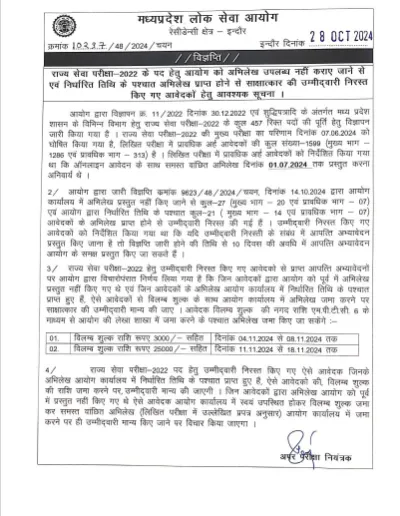 मध्यप्रदेश लोक सेवा आयोग
रेसीडेन्सी क्षेत्र – इन्दौर
क्रमांक 10237/48/2024/चयन
इन्दौर दिनांक 28 OCT 2024
// विज्ञप्ति //
राज्य सेवा परीक्षा–2022 के पद हेतु आयोग को अभिलेख उपलब्ध नहीं कराए जाने से
एवं निर्धारित तिथि के पश्चात अभिलेख प्राप्त होने से साक्षात्कार की उम्मीदवारी निरस्त
किए गए आवेदकों हेतु आवश्यक सूचना ।
आयोग द्वारा विज्ञापन क्र. 11/2022 दिनांक 30.12.2022 एवं शुद्धिपत्रादि के अंतर्गत मध्य प्रदेश
शासन के विभिन्न विभाग हेतु राज्य सेवा परीक्षा–2022 के कुल 457 रिक्त पदों की पूर्ति हेतु विज्ञापन
जारी किया गया है । राज्य सेवा परीक्षा–2022 की मुख्य परीक्षा का परिणाम दिनांक 07.06.2024 को
घोषित किया गया है, लिखित परीक्षा में प्रावधिक अर्ह आवेदकों की कुल संख्या–1599 (मुख्य भाग –
1286 एवं प्रावधिक भाग – 313) है । लिखित परीक्षा में प्रावधिक अर्ह आवेदकों को निर्देशित किया गया
था कि ऑनलाइन आवेदन के साथ समस्त वांछित अभिलेख दिनांक 01.07.2024 तक प्रस्तुत करना
अनिवार्य थे ।
2/ आयोग द्वारा जारी विज्ञप्ति क्रमांक 9623/48/2024/चयन, दिनांक 14.10.2024 द्वारा आयोग
कार्यालय में अभिलेख प्रस्तुत नहीं किए जाने से कुल–27 (मुख्य भाग – 20 एवं प्रावधिक भाग – 07)
एवं आयोग द्वारा निर्धारित तिथि के पश्चात कुल–21 ( मुख्य भाग – 14 एवं प्रावधिक भाग – 07)
आवेदकों के अभिलेख प्राप्त होने से उम्मीदवारी निरस्त की गई है । उम्मीदवारी निरस्त किए गए
आवेदकों को निर्देशित किया गया था कि यदि उम्मीदवारी निरस्ती के संबंध में आपत्ति अभ्यावेदन
प्रस्तुत किए जाना है तो विज्ञप्ति जारी होने की तिथि से 10 दिवस की अवधि में आपत्ति अभ्यावेदन
आयोग के समक्ष प्रस्तुत किए जा सकते हैं ।
3/ राज्य सेवा परीक्षा–2022 हेतु उम्मीदवारी निरस्त किए गए आवेदकों से प्राप्त आपत्ति अभ्यावेदनों
पर आयोग द्वारा विचारोपरांत निर्णय लिया गया है कि जिन आवेदकों द्वारा आयोग को पूर्व में अभिलेख
प्रस्तुत नहीं किए गए थे एवं जिन आवेदकों के अभिलेख आयोग कार्यालय में निर्धारित तिथि के पश्चात
प्राप्त हुए हैं, ऐसे आवेदकों से विलम्ब शुल्क के साथ आयोग कार्यालय में अभिलेख जमा करने पर
साक्षात्कार की उम्मीदवारी मान्य की जाए । आवेदक विलम्ब शुल्क की नगद राशि एम.पी.टी.सी. 6 के
माध्यम से आयोग की लेखा शाखा में जमा करने के पश्चात अभिलेख जमा किए जा सकेंगे :–
01. विलम्ब शुल्क राशि रूपए 3000/– सहित दिनांक 04.11.2024 से 08.11.2024 तक
02. विलम्ब शुल्क राशि रूपए 25000/– सहित दिनांक 11.11.2024 से 18.11.2024 तक
4/ राज्य सेवा परीक्षा–2022 पद हेतु उम्मीदवारी निरस्त किए गए ऐसे आवेदक जिनके
अभिलेख आयोग कार्यालय में निर्धारित तिथि के पश्चात प्राप्त हुए हैं, ऐसे आवेदकों की, विलम्ब शुल्क
की राशि जमा करने पर, उम्मीदवारी मान्य की जाएगी । जिन आवेदकों द्वारा अभिलेख आयोग को पूर्व
में प्रस्तुत नहीं किए गए थे ऐसे आवेदक आयोग कार्यालय में स्वयं उपस्थित होकर विलम्ब शुल्क जमा
कर समस्त वांछित अभिलेख (लिखित परीक्षा में उल्लेखित प्रपत्र अनुसार) आयोग कार्यालय में जमा
करने पर ही उम्मीदवारी मान्य किए जाने पर विचार किया जाएगा ।
अपर परीक्षा नियंत्रक